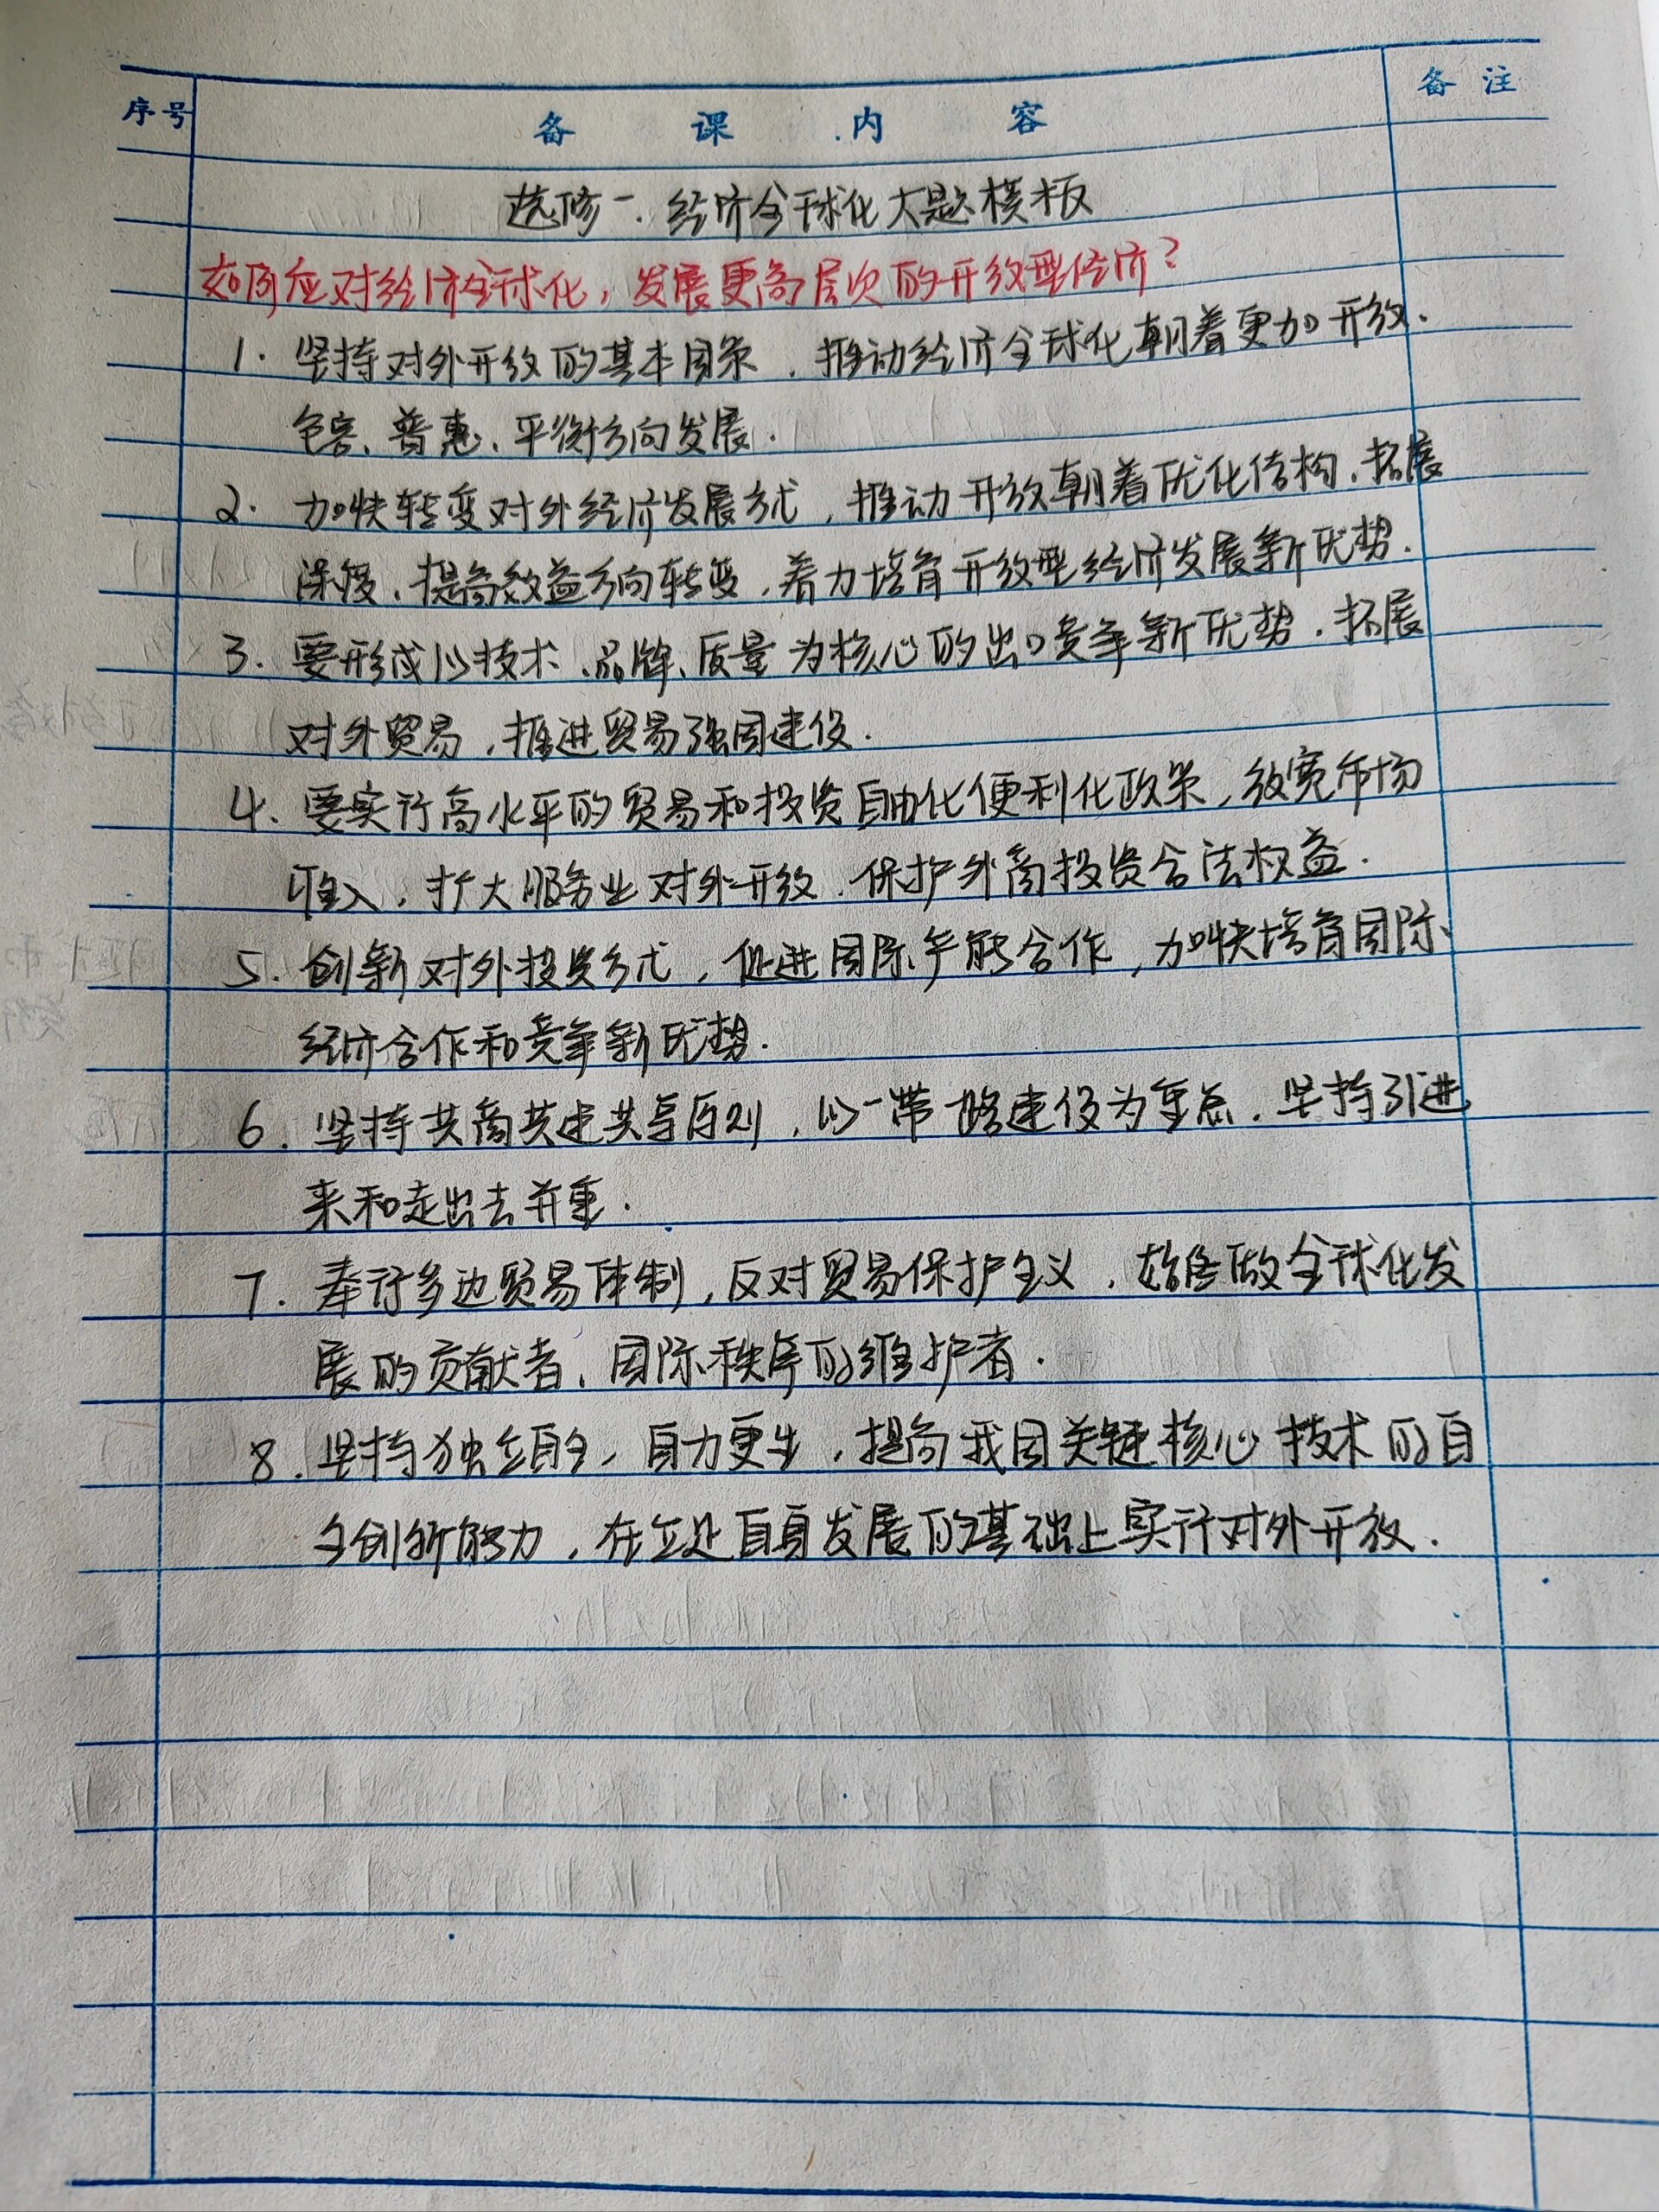 序号 备课内容 备注
选修一.经济全球化大题模板
如何应对经济全球化,发展更高层次的开放型经济?
1. 坚持对外开放的基本国策,推动经济全球化朝着更加开放、
包容、普惠、平衡方向发展.
2. 加快转变对外经济发展方式,推动开放朝着优化结构、拓展
深度、提高效益方向转变,着力培育开放型经济发展新优势.
3. 要形成以技术、品牌、质量为核心的出口竞争新优势.拓展
对外贸易,推进贸易强国建设.
4. 要实行高水平的贸易和投资自由化便利化政策,放宽市场
准入,扩大服务业对外开放.保护外商投资合法权益.
5. 创新对外投资方式,促进国际产能合作,加快培育国际
经济合作和竞争新优势.
6. 坚持共商共建共享原则,以一带一路建设为重点.坚持引进
来和走出去并重.
7. 奉行多边贸易体制,反对贸易保护主义,始终做全球化发
展的贡献者、国际秩序的维护者.
8. 坚持独立自主、自力更生,提高我国关键核心技术的自
主创新能力,在立足自身发展的基础上实行对外开放.